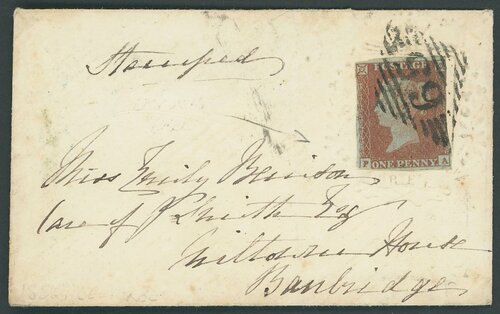 Stamped
POSTAGE
69
P ONE PENNY A
Miss Emily
Care of J Smith Esq
Milltown House
Banbridge